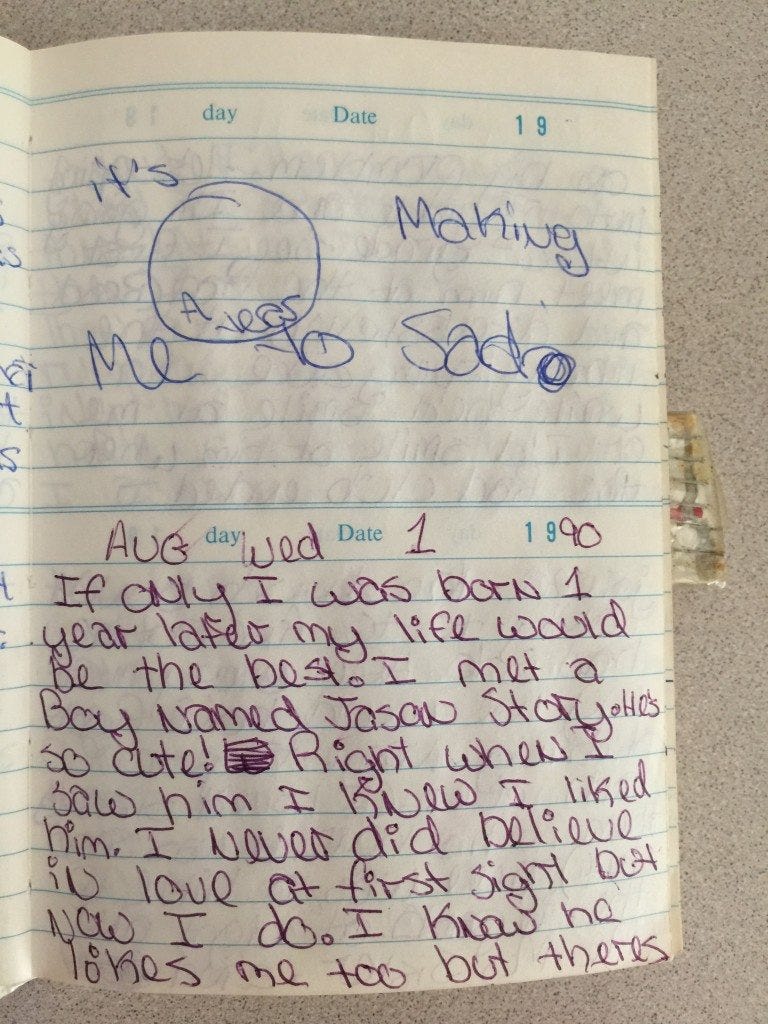 day Date 19
it's Making
A
Me to Sad.
AUG day Wed Date 1 1990
If only I was born 1
year later my life would
Be the best. I met a
Boy Named Jason Story. He's
so cute! Right when I
saw him I knew I liked
him. I never did believe
in love at first sight but
Now I do. I know he
likes me too but theres